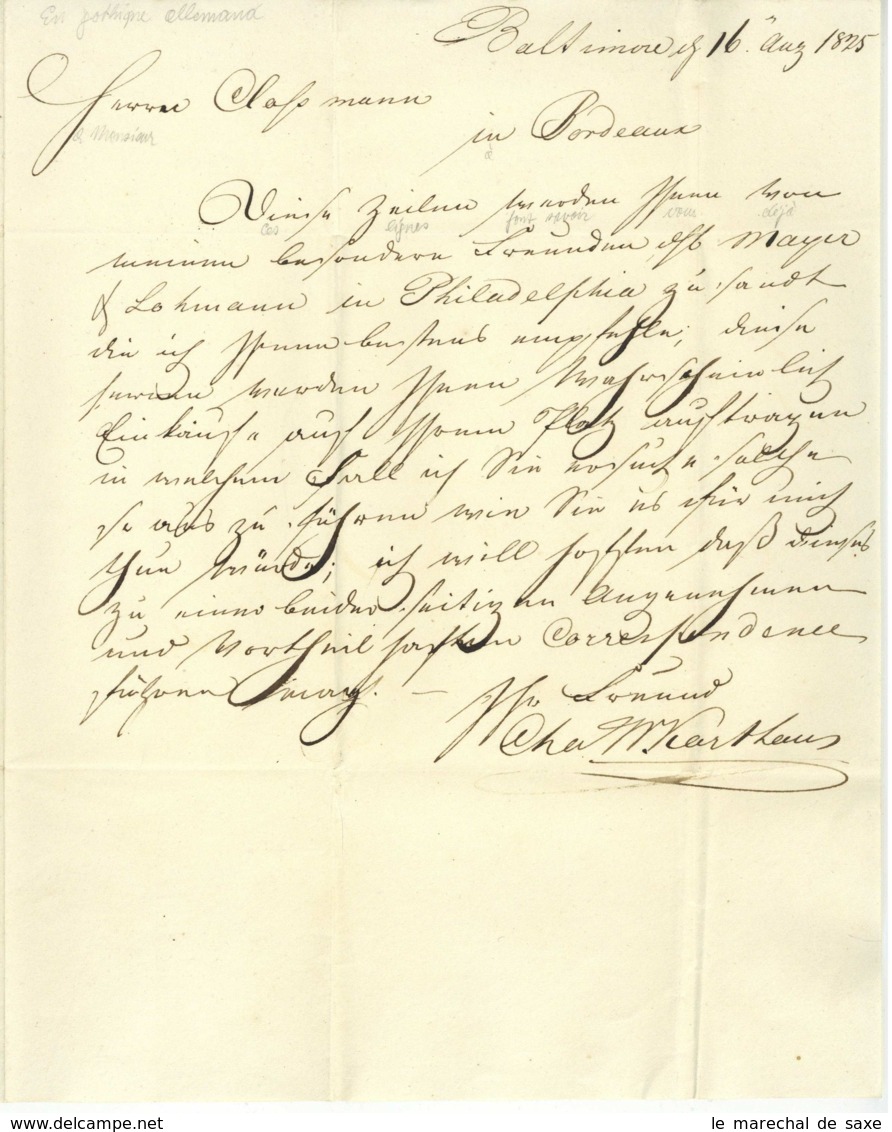 En gothique allemand
Baltimore d 16 Aug 1825
Herren Clossmann
a Monsieur
in Bordeaux
à
Diese Zeilen werden Ihnen von
ces lignes font savoir vous déjà
meinen besondern Freunden Mayer
& Lohmann in Philadelphia zu sandt
die ich Ihnen bestens empfehle; diese
werden Ihnen Wahrscheinlich
Einkäufe auf Ihrem Platz auftragen
in welchem Fall ich Sie ersuche solche
so aus zu führen wie Sie es für mich
thun würde; ich will hoffen daß dieses
zu einer beider seitigen Angenehmen
und Vortheilhaften Correspondence
führen mag. —
Ihr Freund
Cha W Karthaus
le marechal de saxe